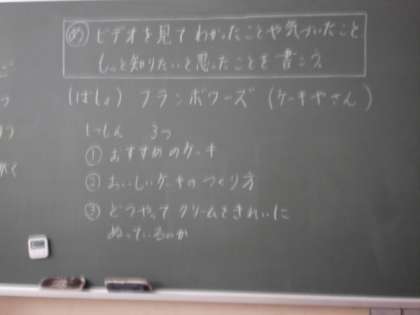 め ビデオを見てわかったことや気づいたこと
もっと知りたいと思ったことを書こう
(ばしょ) フランボワーズ (ケーキやさん)
しつもん 3つ
① おすすめのケーキ
② おいしいケーキのつくり方
③ どうやってクリームをきれいに
ぬっているのか